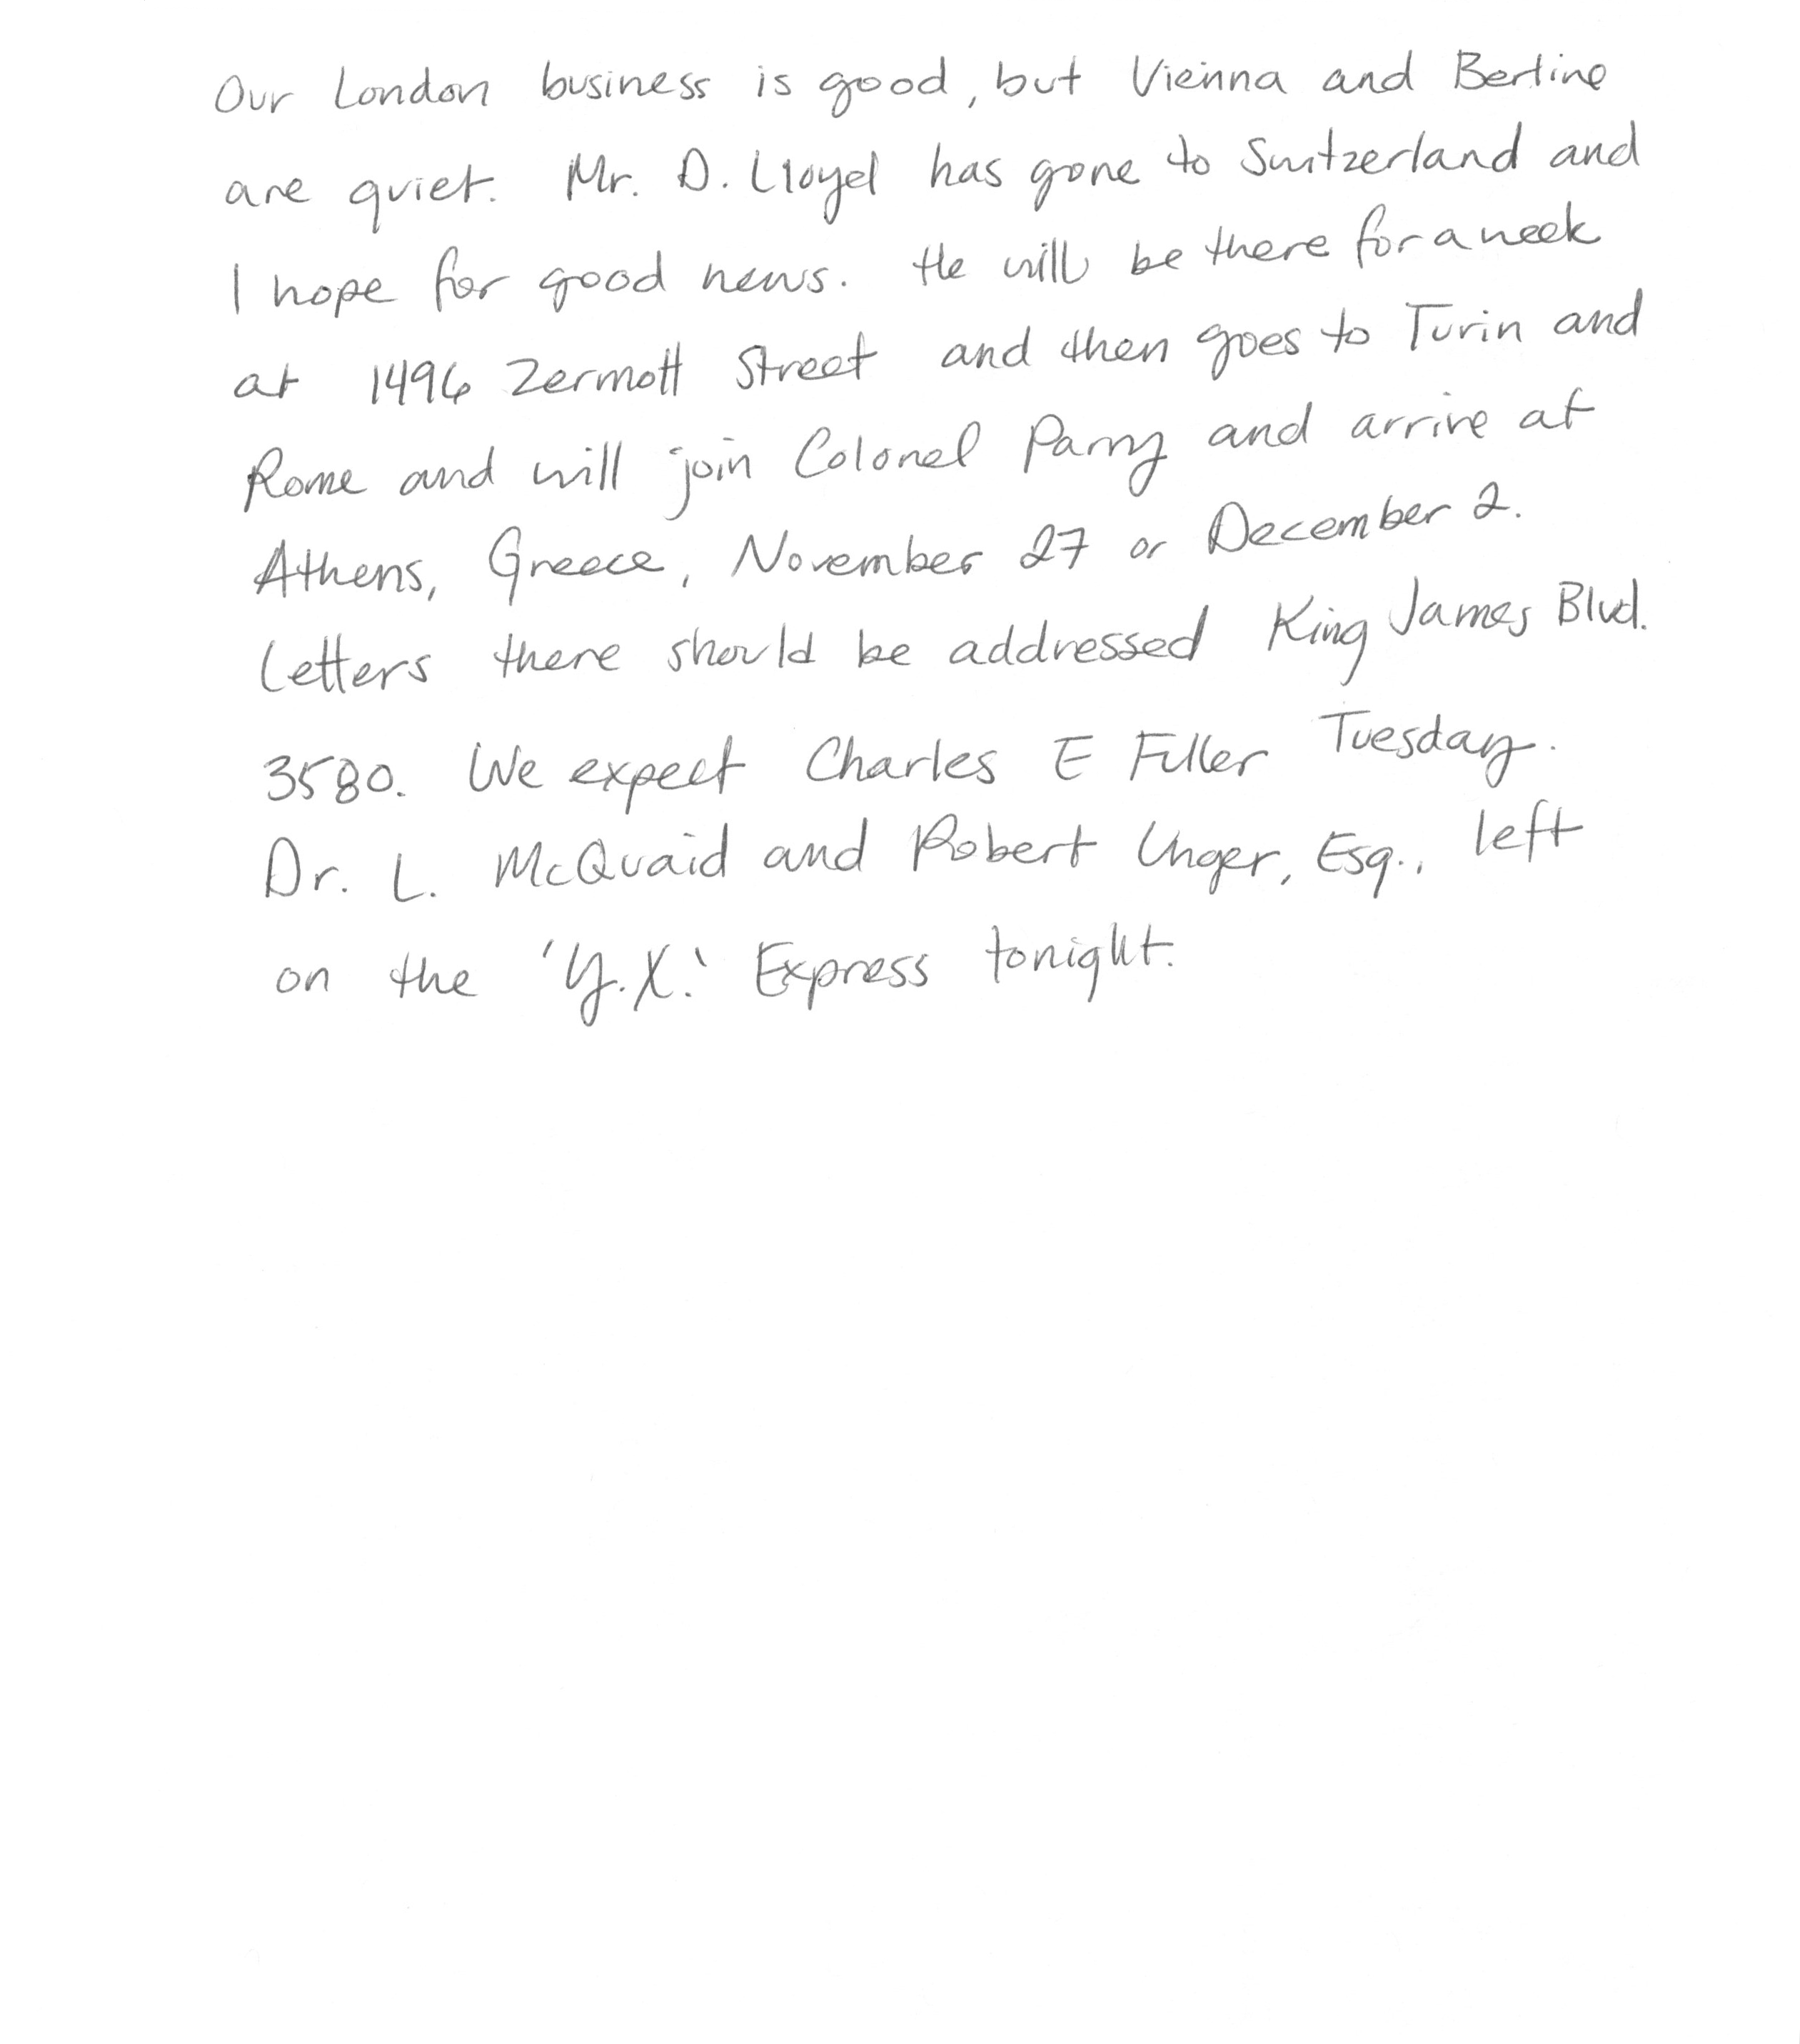 Our London business is good, but Vienna and Berline
are quiet. Mr. D. Lloyd has gone to Switzerland and
I hope for good news. He will be there for a week
at 1496 Zermott Street and then goes to Turin and
Rome and will join Colonel Parry and arrive at
Athens, Greece, November 27 or December 2.
Letters there should be addressed King James Blvd.
3580. We expect Charles E Fuller Tuesday.
Dr. L. McQuaid and Robert Unger, Esq., left
on the 'Y.X.' Express tonight.